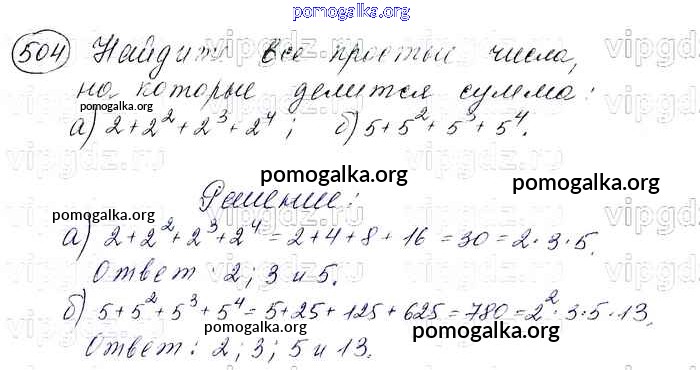 pomogalka.org
504 Найдите все простые числа,
на которые делится сумма:
pomogalka.org
а) 2+2²+2³+2⁴; б) 5+5²+5³+5⁴.
pomogalka.org
pomogalka.org
Решение:
pomogalka.org
а) 2+2²+2³+2⁴=2+4+8+16=30=2·3·5.
Ответ: 2; 3 и 5.
б) 5+5²+5³+5⁴=5+25+125+625=780=2²·3·5·13.
pomogalka.org
pomogalka.org
Ответ: 2; 3; 5 и 13.